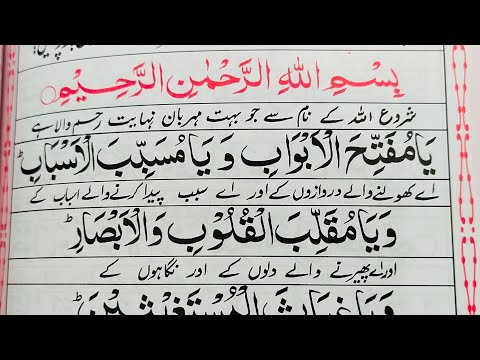 بِسْمِ اللهِ الرَّحْمٰنِ الرَّحِيْمِ
شروع اللہ کے نام سے جو بہت مہربان نہایت رحم والا ہے
يَا مُفَتِّحَ الْاَبْوَابِ وَ يَا مُسَبِّبَ الْاَسْبَابِ ط
اے کھولنے والے دروازوں کے اور اے سبب پیدا کرنے والے اسباب کے
وَ يَا مُقَلِّبَ الْقُلُوْبِ وَالْاَبْصَارِ ط
اور اے پھیرنے والے دلوں کے اور نگاہوں کے
وَ يَا غِيَاثَ الْمُسْتَغِيْثِيْنَ ط